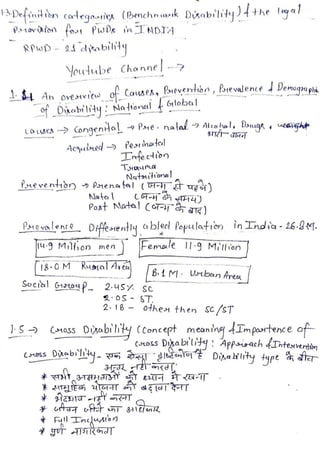 1.3 Definition categories (Benchmark Disability) & the legal
Provision for PWDs in INDIA
RPWD - 21 disability
Youtube Channel →
1.4 An overview of Causes, Prevention, Prevalence & Demographi
of Disability: National & Global
Causes → Congenital → Pre-natal → Alcohol, Drugs,
Acquired → Perinatal
Infection
Trauma
Nutritional
Prevention → Prenatal (जन्म से पहले)
Natal (जन्म के समय)
Post Natal (जन्म के बाद)
Prevalence Differently abled Population in India - 26.8M.
14.9 Million men Female 11.9 Million
18.0M Rural Area 8.1M. Urban Area
Social Group - 2.45% SC
2.05 - ST.
2.18 - other then SC/ST
1.5 → Cross Disability (Concept meaning & Importence of
Cross Disability: Approach & Intervention
Cross Disability - एक ऐसा दृष्टिकोण है Disability type के बीच
अन्तर नहीं करता
* सभी असमानताओं को ध्यान में रखना
* सामूहिक योजना को बढ़ावा देना
* भेदभाव नहीं करना
* जीवन जीने का अधिकार
* Full Inclusion
* पूर्ण नागरिकता